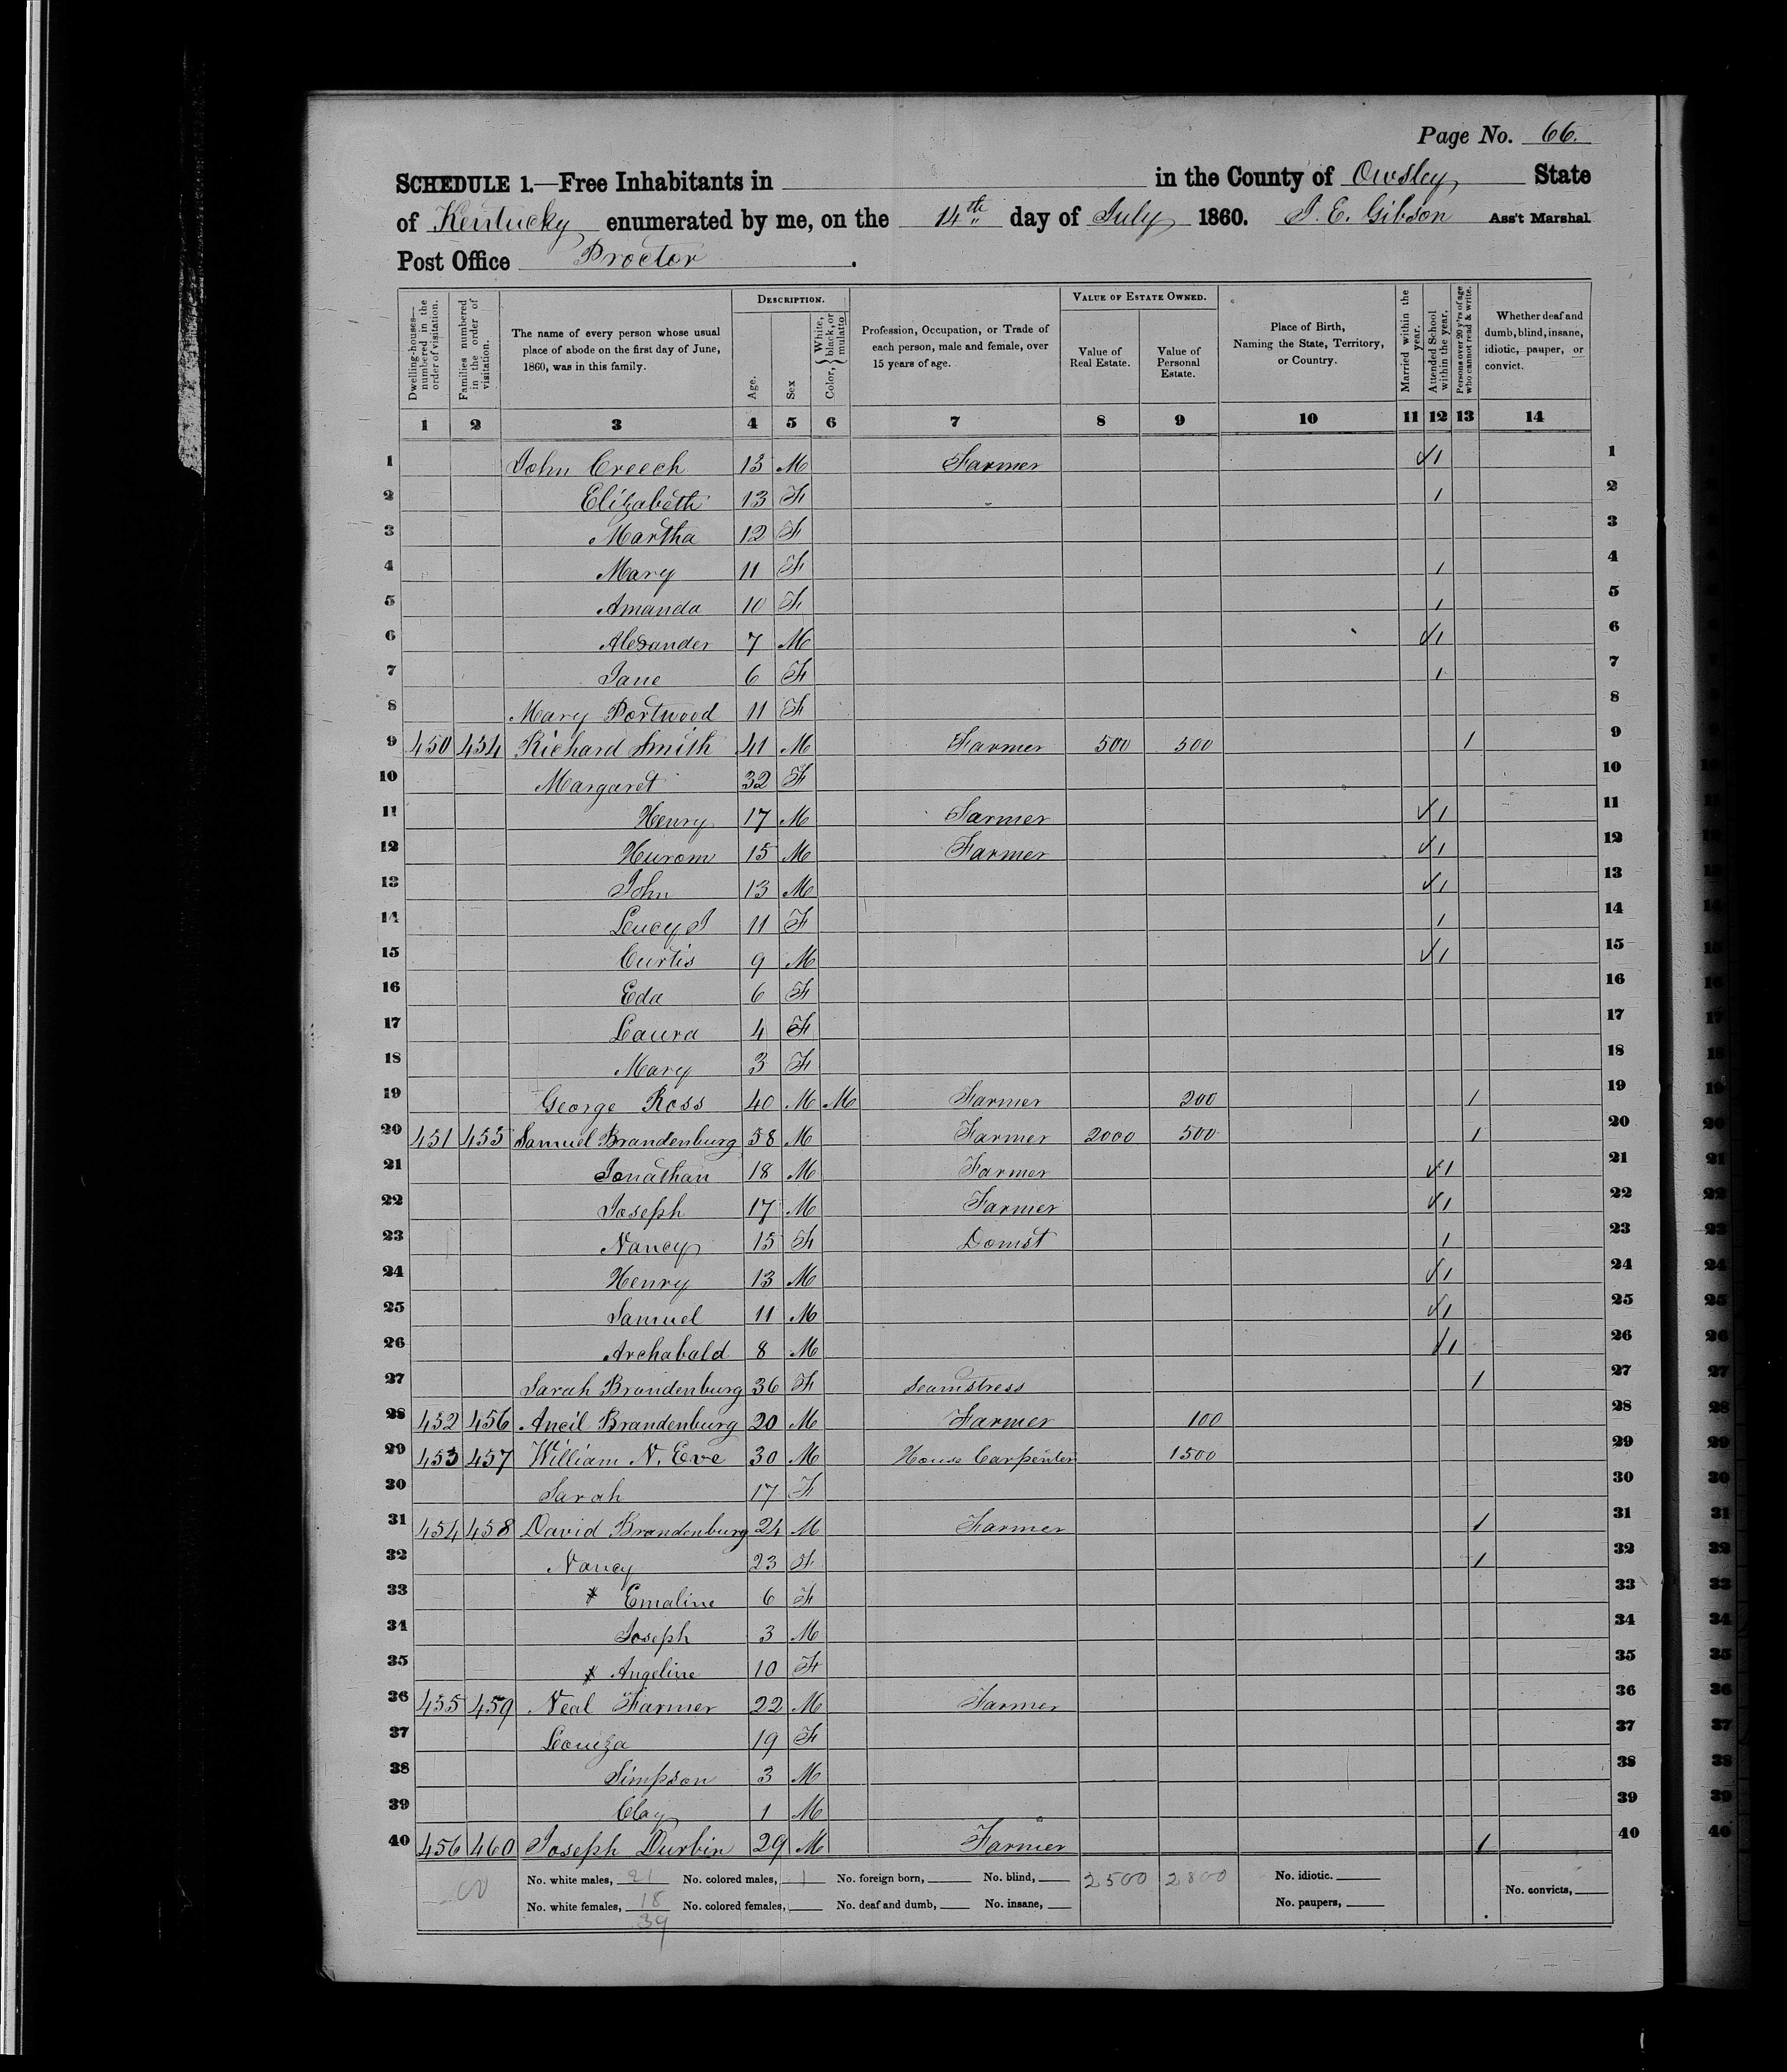 Page No. 66.
SCHEDULE 1.—Free Inhabitants in in the County of Owsley State
of Kentucky enumerated by me, on the 14th day of July 1860. J. E. Gibson Ass't Marshal
Post Office Proctor.
Dwelling-houses—numbered in the order of visitation.
Families numbered in the order of visitation.
The name of every person whose usual place of abode on the first day of June, 1860, was in this family.
DESCRIPTION.
Age.
Sex
Color, { White, black, or mulatto
Profession, Occupation, or Trade of each person, male and female, over 15 years of age.
VALUE OF ESTATE OWNED.
Value of Real Estate.
Value of Personal Estate.
Place of Birth, Naming the State, Territory, or Country.
Married within the year.
Attended School within the year.
Persons over 20 y'rs of age who cannot read & write.
Whether deaf and dumb, blind, insane, idiotic, pauper, or convict.
1 2 3 4 5 6 7 8 9 10 11 12 13 14
1 John Creech 13 M Farmer √ 1 1
2 Elizabeth 13 F 1 2
3 Martha 12 F 3
4 Mary 11 F 1 4
5 Amanda 10 F 1 5
6 Alexander 7 M √ 1 6
7 Jane 6 F 1 7
8 Mary Portwood 11 F 8
9 450 454 Richard Smith 41 M Farmer 500 500 1 9
10 Margaret 32 F 10
11 Henry 17 M Farmer √ 1 11
12 Hurom 15 M Farmer √ 1 12
13 John 13 M √ 1 13
14 Lucy J 11 F 1 14
15 Curtis 9 M √ 1 15
16 Eda 6 F 16
17 Laura 4 F 17
18 Mary 3 F 18
19 George Ross 40 M M Farmer 200 1 19
20 451 455 Samuel Brandenburg 58 M Farmer 2000 500 1 20
21 Jonathan 18 M Farmer √ 1 21
22 Joseph 17 M Farmer √ 1 22
23 Nancy 15 F Domst 1 23
24 Henry 13 M √ 1 24
25 Samuel 11 M √ 1 25
26 Archabald 8 M √ 1 26
27 Sarah Brandenburg 36 F Seamstress 1 27
28 452 456 Ancil Brandenburg 20 M Farmer 100 28
29 453 457 William N. Eve 30 M House Carpenter 1500 29
30 Sarah 17 F 30
31 454 458 David Brandenburg 24 M Farmer 1 31
32 Nancy 23 F 1 32
33 * Emaline 6 F 33
34 Joseph 3 M 34
35 * Angeline 10 F 35
36 455 459 Neal Farmer 22 M Farmer 36
37 Louiza 19 F 37
38 Simpson 3 M 38
39 Clay 1 M 39
40 456 460 Joseph Durbin 29 M Farmer 1 40
No. white males, 21 No. colored males, 1 No. foreign born, No. blind, 2500 2800 No. idiotic.
No. white females, 18 No. colored females, No. deaf and dumb, No. insane, No. paupers, No. convicts,
39